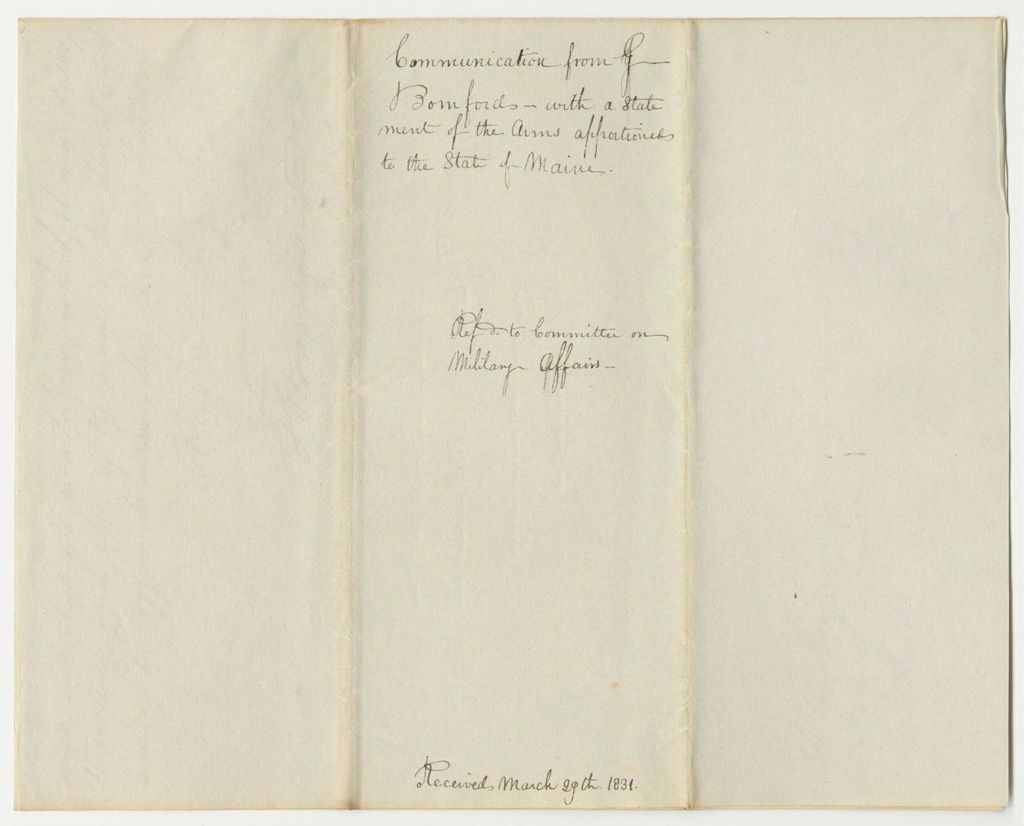 Communication from G
Bomford - with a State
ment of the Arms apportioned
to the State of Maine.
Refd. to Committee on
Military Affairs -
Received March 29th. 1831.